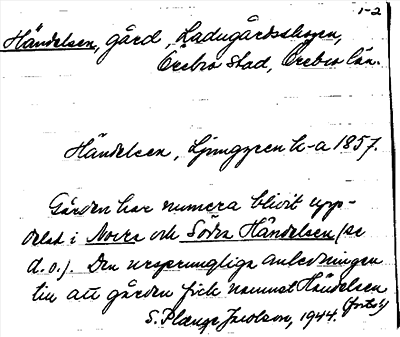 1-2
Händelsen, gård, Ladugårdsskogen,
Örebro stad, Örebro län.
Händelsen, Ljunggren h-a 1857.
Gården har numera blivit upp-
delad i Norra och Södra Händelsen (se
d.o.). Den ursprungliga anledningen
till att gården fick namnet Händelsen
(forts.)
S. Plange Jacobson, 1944.